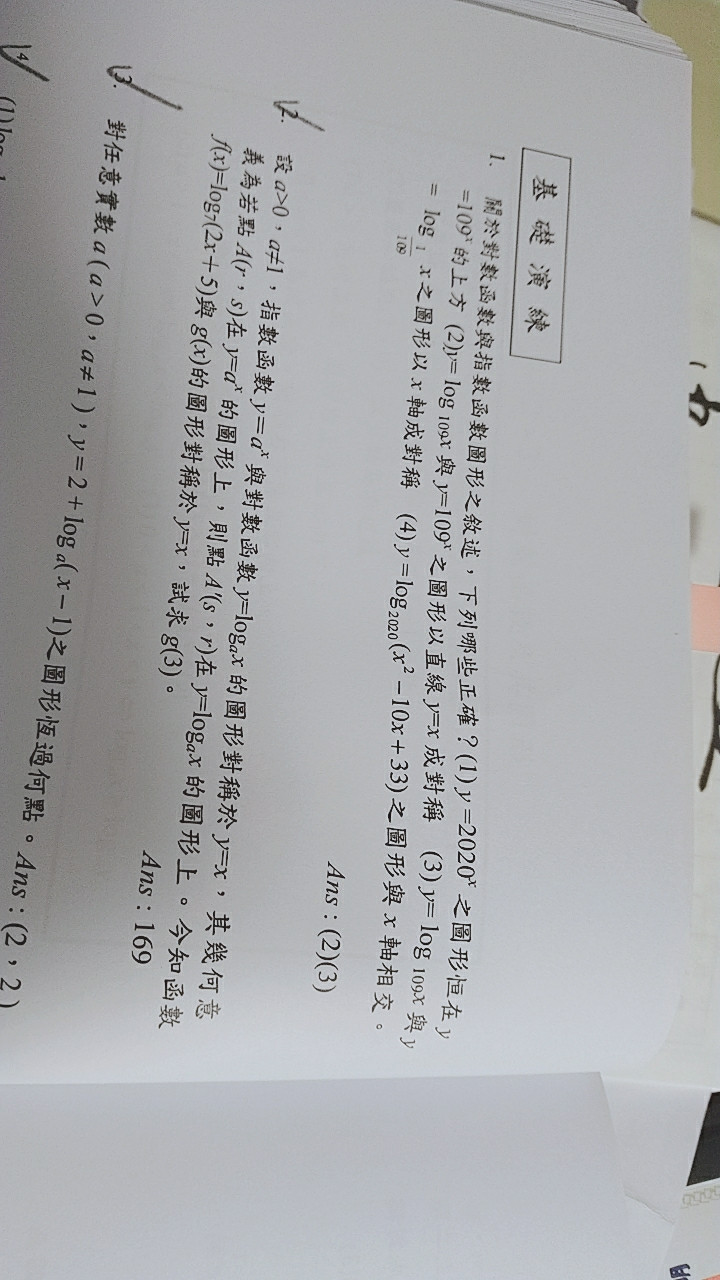 基礎演練
1. 關於對數函數與指數函數圖形之敘述,下列哪些正確?(1) y=2020ˣ 之圖形恒在 y
=109ˣ 的上方 (2)y= log ₁₀₉x 與 y=109ˣ 之圖形以直線 y=x 成對稱 (3) y= log ₁₀₉x 與 y
= log_(1/109) x 之圖形以 x 軸成對稱 (4) y = log₂₀₂₀ (x² −10x+33) 之圖形與 x 軸相交。
Ans:(2)(3)
2. 設 a>0,a≠1,指數函數 y=aˣ 與對數函數 y=logₐx 的圖形對稱於 y=x,其幾何意
義為若點 A(r,s)在 y=aˣ 的圖形上,則點 A'(s,r)在 y=logₐx 的圖形上。今知函數
f(x)=log₇(2x+5)與 g(x)的圖形對稱於 y=x,試求 g(3)。
Ans:169
3. 對任意實數 a ( a > 0,a ≠ 1 ),y = 2 + log ₐ( x − 1)之圖形恆過何點。Ans:(2,2)
4
(1)log